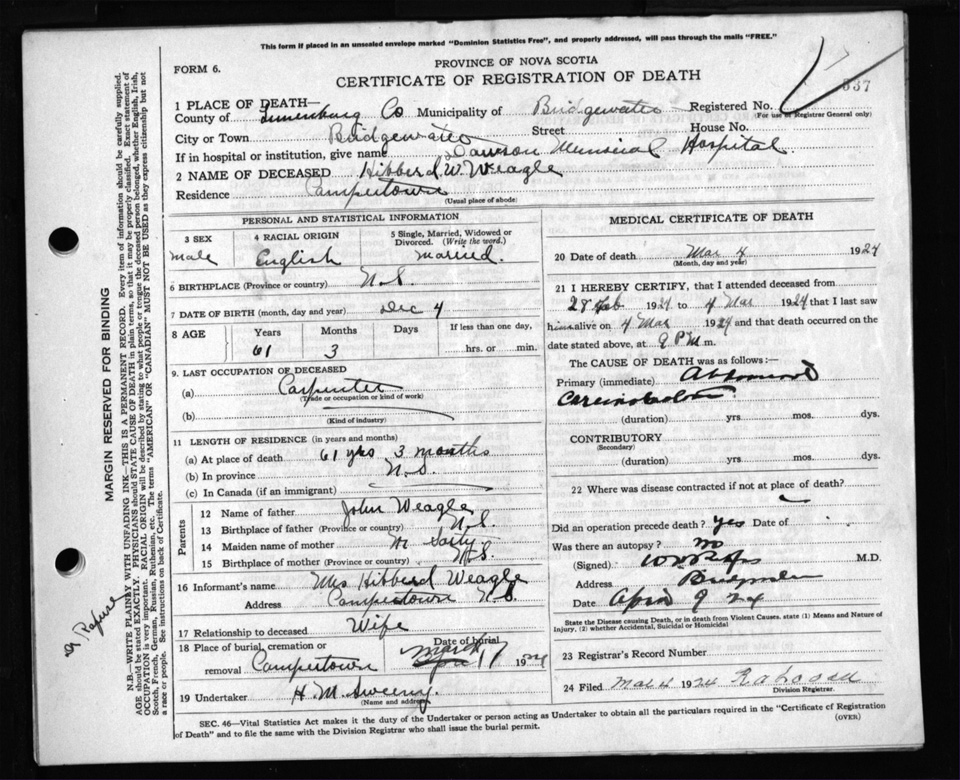 This form if placed in an unsealed envelope marked "Dominion Statistics Free", and properly addressed, will pass through the mails "FREE."
FORM 6.
PROVINCE OF NOVA SCOTIA
CERTIFICATE OF REGISTRATION OF DEATH
337
1 PLACE OF DEATH—
County of Lunenburg Co Municipality of Bridgewater Registered No.
(For use of Registrar General only)
City or Town Bridgewater Street House No.
If in hospital or institution, give name Dawson Memorial Hospital.
2 NAME OF DECEASED Hibberd W. Weagle
Residence Camperdown
(Usual place of abode)
PERSONAL AND STATISTICAL INFORMATION
3 SEX
male
4 RACIAL ORIGIN
English
5 Single, Married, Widowed or Divorced. (Write the word.)
married.
6 BIRTHPLACE (Province or country) N.S.
7 DATE OF BIRTH (month, day and year) Dec 4
8 AGE Years Months Days If less than one day,
61 3 hrs. or min.
9. LAST OCCUPATION OF DECEASED
(a) Carpenter
(Trade or occupation or kind of work)
(b)
(Kind of industry)
11 LENGTH OF RESIDENCE (in years and months)
(a) At place of death 61 yrs 3 months
(b) In province N.S.
(c) In Canada (if an immigrant)
Parents
12 Name of father John Weagle
13 Birthplace of father (Province or country) N.S.
14 Maiden name of mother
15 Birthplace of mother (Province or country) N.S.
16 Informant's name Mrs Hibberd Weagle
Address Camperdown N.S.
17 Relationship to deceased Wife
18 Place of burial, cremation or removal Camperdown
Date of burial
March 7 1924
19 Undertaker H. M. Sweeny.
(Name and address)
MEDICAL CERTIFICATE OF DEATH
20 Date of death Mar 4 1924
(Month, day and year)
21 I HEREBY CERTIFY, that I attended deceased from
28 Feb 1924 to 4 Mar 1924 that I last saw
him alive on 4 Mar 1924 and that death occurred on the
date stated above, at 9 P M m.
The CAUSE OF DEATH was as follows:—
Primary (immediate) Abdominal
(duration) yrs. mos. dys.
CONTRIBUTORY
(Secondary)
(duration) yrs. mos. dys.
22 Where was disease contracted if not at place of death?
Did an operation precede death? yes Date of
Was there an autopsy? no
(Signed) M.D.
Address
Date April 9 24
State the Disease causing Death, or in death from Violent Causes, state (1) Means and Nature of
Injury, (2) whether Accidental, Suicidal or Homicidal
23 Registrar's Record Number
24 Filed Mar 4 1924
Division Registrar.
SEC. 46—Vital Statistics Act makes it the duty of the Undertaker or person acting as Undertaker to obtain all the particulars required in the "Certificate of Registration
of Death" and to file the same with the Division Registrar who shall issue the burial permit.
(OVER)
MARGIN RESERVED FOR BINDING
N.B.—WRITE PLAINLY WITH UNFADING INK—THIS IS A PERMANENT RECORD. Every item of information should be carefully supplied.
AGE should be stated EXACTLY. PHYSICIANS should STATE CAUSE OF DEATH in plain terms, so that it may be properly classified. Exact statement of
OCCUPATION is very important. RACIAL ORIGIN will be described by stating to what people or tongue the deceased person belonged, whether English, Irish,
Scotch, French, German, Russian, Ruthenian, etc. The terms "AMERICAN" OR "CANADIAN" MUST NOT BE USED as they express citizenship but not
a race or people. See instructions on back of Certificate.